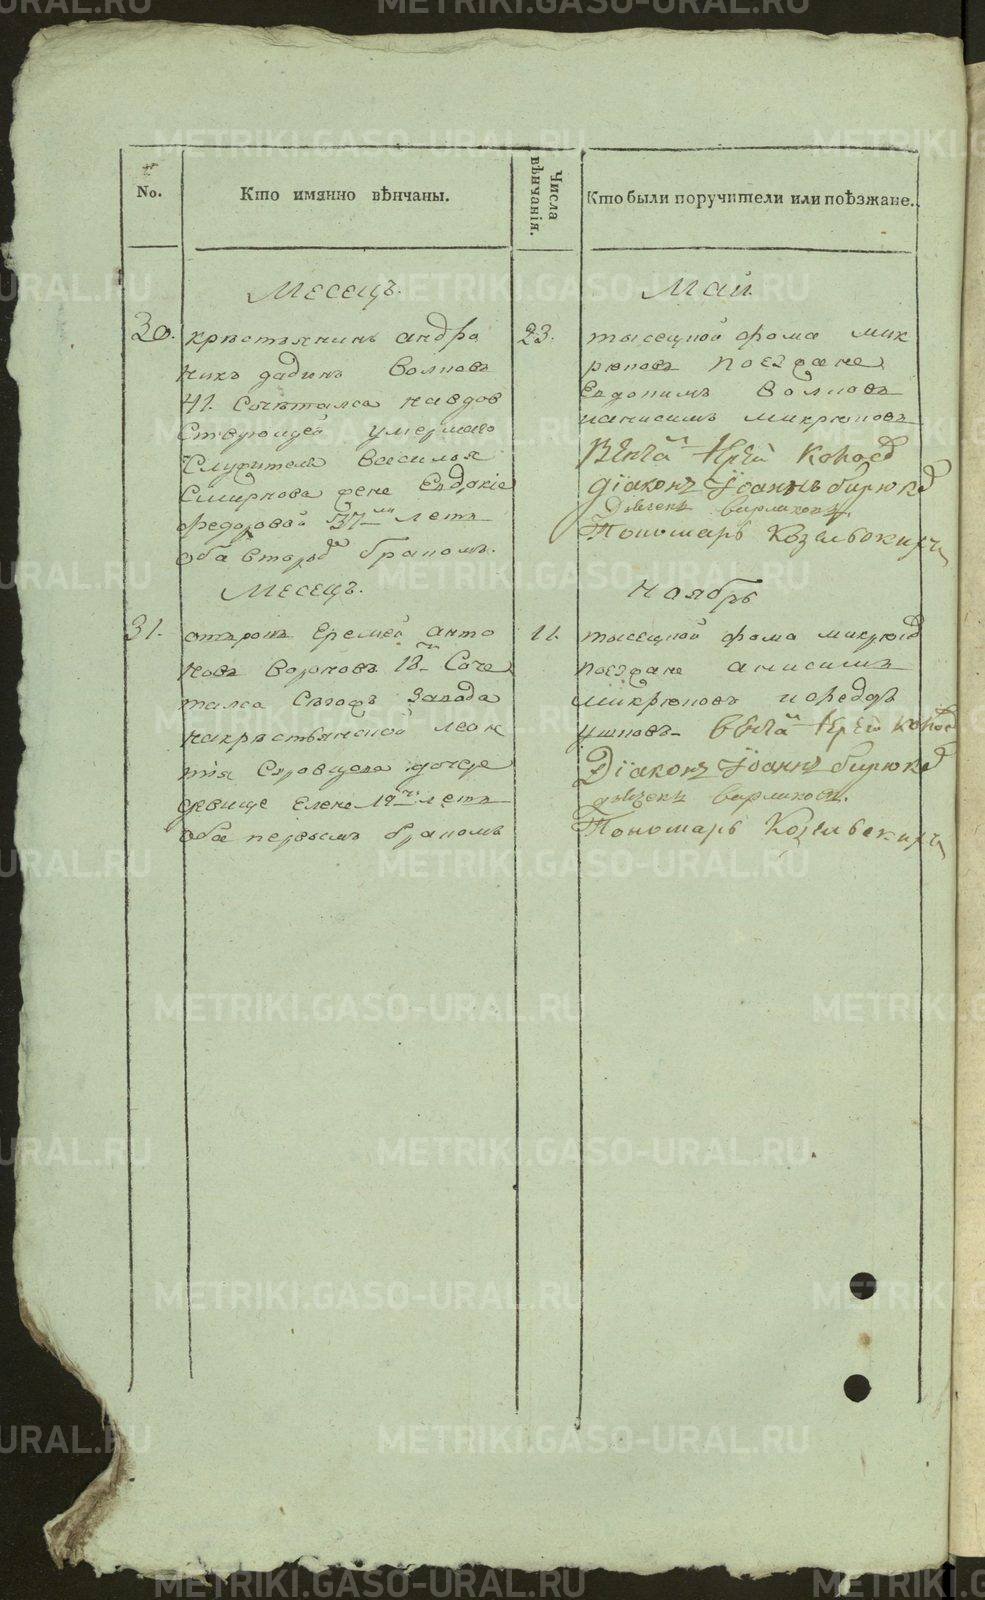 No.
Кто имянно вѣнчаны.
Числа вѣнчанія.
Кто были поручители или поѣзжане.
Месецъ.
Май
30. крѣстьянинъ андро
никъ Волковъ
41. Сочѣтался навдов
ствующей умершаго
Служителя василья
Смирнова жене Евдокіе
федоровой 37ми летъ
оба вторы бракомъ.
23. тысецкой фома мик
рюковъ поезжане
Евдокимъ Волковъ
ианисимъ микрюковъ
Вѣнча іерей
діаконъ Іоаннъ бирюко
дьячекъ
Пономарь Козельскихъ
Месецъ.
Ноябрь
31. отрокъ Еремей анто
новъ 18 Соче
тался Сегожъ Завода
накрестьянской леон
тія дочере
девице Елене 19 летъ
оба первымъ бракомъ
11. тысецкой фома микрюко
поезжане анисимъ
микрюковъ ифедоръ
ушковъ вѣнча іерей
Діаконъ Іоаннъ бирюко
дьячекъ
Пономарь Козельскихъ
METRIKI.GASO-URAL.RU